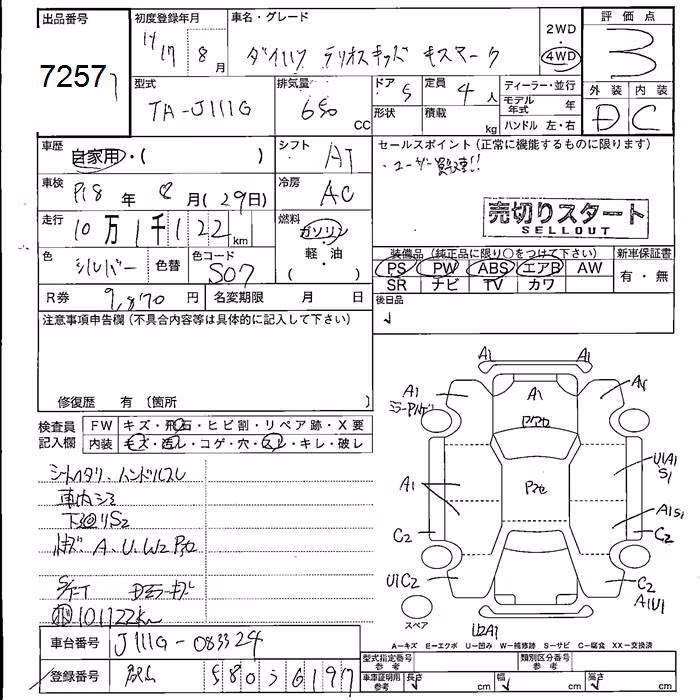 出品番号
7257
初度登録年月
H17 8月
車名・グレード
ダイハツ テリオスキッド キスマーク
2WD・4WD
評価点
3
外装 内装
D C
型式
TA-J111G
排気量
650 CC
ドア 5
形状
定員 4人
積載 kg
ディーラー・並行
モデル年式 年
ハンドル 左・右
車歴
自家用・( )
シフト AT
セールスポイント(正常に機能するものに限ります)
・ユーザー買取車!!
車検
年 8月(29日)
冷房 AC
売切りスタート
SELLOUT
走行
10万1千122km
燃料
ガソリン
軽・油
( )
色 シルバー 色替
色コード S07
装備品(純正品に限り○をつけて下さい)
PS PW ABS エアB AW
SR ナビ TV カワ
新車保証書
有・無
R券 9,870円
名変期限 月 日
後日品
注意事項申告欄(不具合内容等は具体的に記入して下さい)
修復歴 有(箇所 )
検査員記入欄
FW キズ・飛石・ヒビ割・リペア跡・X要
内装 キズ・汚レ・コゲ・穴・スレ・キレ・破レ
シートヘタリ、ハンドルスレ
車内シミ
下廻りS2
A、U、W2
101122km
車台番号 J111G-083324
登録番号 580 6197
A1 A1
A1 A1 A1
A1
U1A1
S1
A1S1
C2 C2
U1C2 C2
A1U1
U2A1
スペア
A-キズ E-エクボ U-凹み W-補修跡 S-サビ C-腐食 XX-交換済
型式指定番号 参考
類別区分番号 参考
車庫証明用 参考
長さ cm 幅 cm 高さ cm